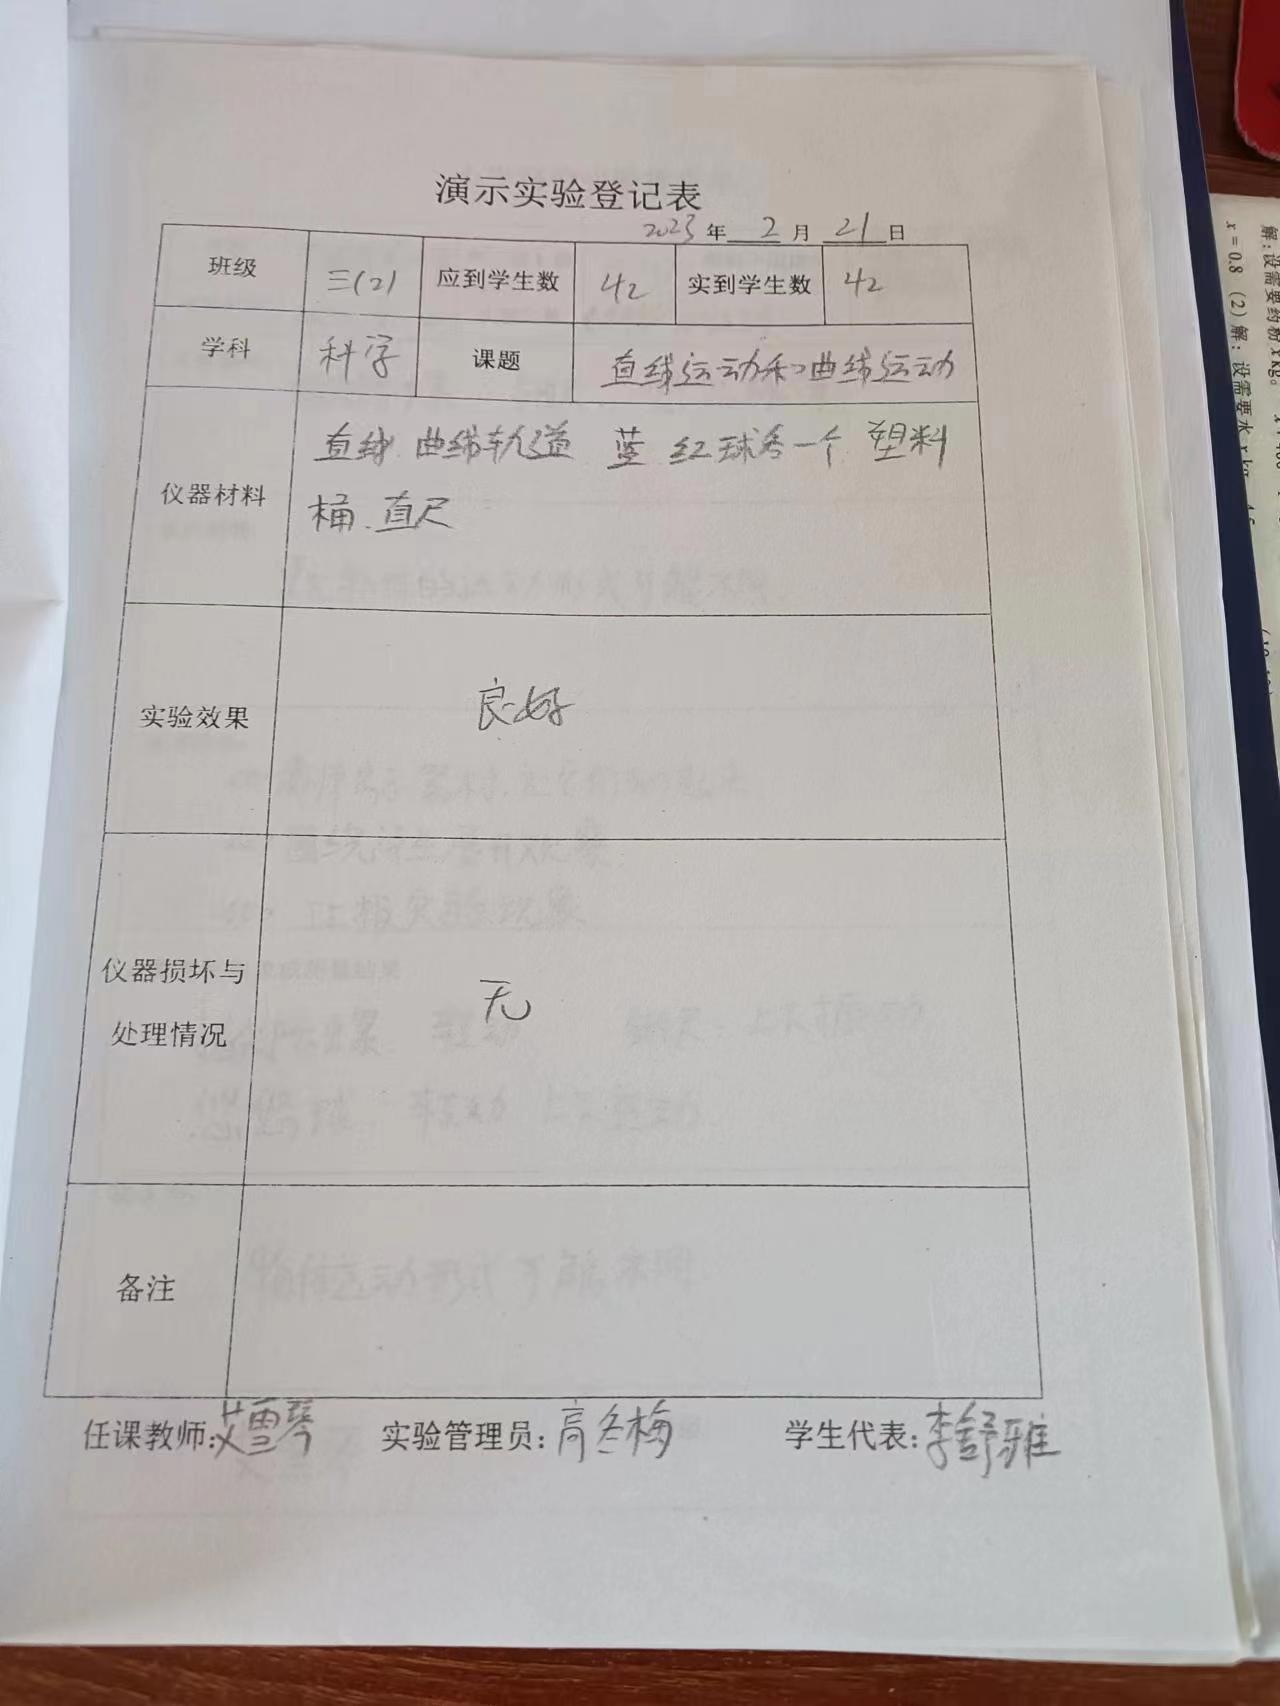 演示实验登记表
2023年 2 月 21 日
班级 三(2) 应到学生数 42 实到学生数 42
学科 科学 课题 直线运动和曲线运动
仪器材料 直线 曲线轨道 蓝 红球各一个 塑料
桶、直尺
实验效果 良好
仪器损坏与
处理情况 无
备注
任课教师:艾雪琴 实验管理员:高冬梅 学生代表:李舒雅
解:设需要药粉xkg。
x=0.8 (2)解:设需要水xkg